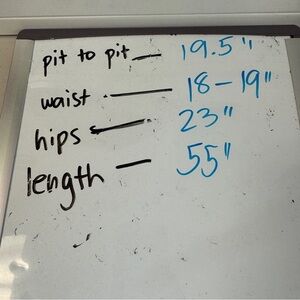 pit to pit — 19.5"
waist — 18-19"
hips — 23"
length — 55"